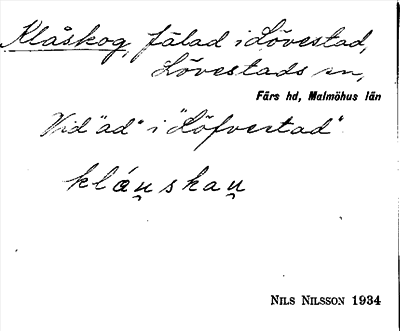 Klåskog, fälad i Lövestad,
Lövestads sn,
Färs hd, Malmöhus län
Vid "ad" i "Löfvestad"
kláṷskaṷ
NILS NILSSON 1934